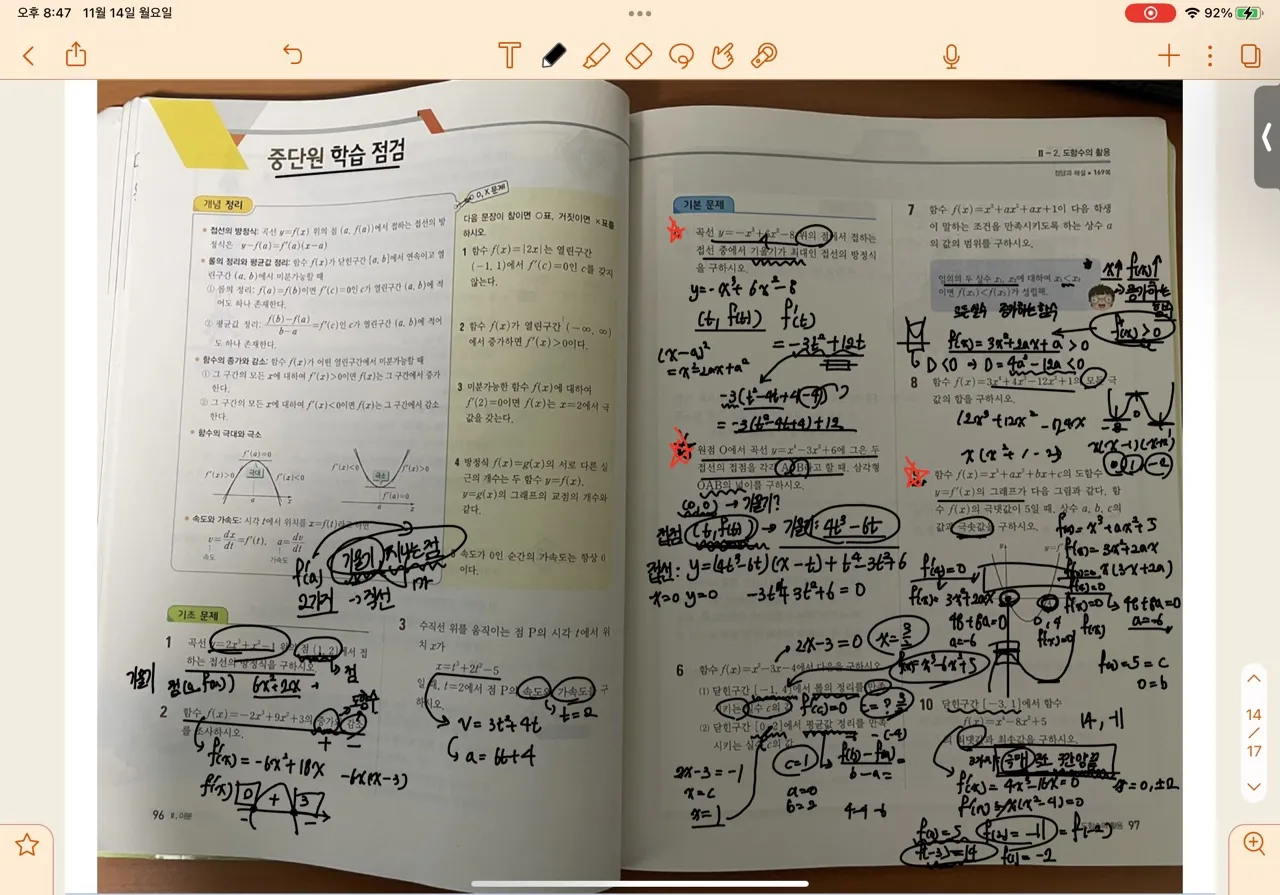 오후 8:47 11월 14일 월요일
92%
중단원 학습 점검
개념 정리
• 접선의 방정식: 곡선 y=f(x) 위의 점 (a, f(a))에서 접하는 접선의 방
정식은 y-f(a)=f'(a)(x-a)
• 롤의 정리와 평균값 정리: 함수 f(x)가 닫힌구간 [a, b]에서 연속이고 열
린구간 (a, b)에서 미분가능할 때
① 롤의 정리: f(a)=f(b)이면 f'(c)=0인 c가 열린구간 (a, b)에 적
어도 하나 존재한다.
② 평균값 정리: f(b)-f(a)/b-a=f'(c)인 c가 열린구간 (a, b)에 적어
도 하나 존재한다.
• 함수의 증가와 감소: 함수 f(x)가 어떤 열린구간에서 미분가능할 때
① 그 구간의 모든 x에 대하여 f'(x)>0이면 f(x)는 그 구간에서 증가
한다.
② 그 구간의 모든 x에 대하여 f'(x)<0이면 f(x)는 그 구간에서 감소
한다.
• 함수의 극대와 극소
f'(a)=0
f'(x)>0 극대 f'(x)<0
a x
f'(x)<0 극소 f'(x)>0
f'(a)=0
a x
• 속도와 가속도: 시각 t에서 위치를 x=f(t)라고 하면
v=dx/dt=f'(t), a=dv/dt
속도 가속도
f'(a) 기울기 지나는 점
2가지 → 직선
O, X 문제
다음 문장이 참이면 ○표, 거짓이면 ×표를
하시오.
1 함수 f(x)=|2x|는 열린구간
(-1, 1)에서 f'(c)=0인 c를 갖지
않는다.
2 함수 f(x)가 열린구간 (-∞, ∞)
에서 증가하면 f'(x)>0이다.
3 미분가능한 함수 f(x)에 대하여
f'(2)=0이면 f(x)는 x=2에서 극
값을 갖는다.
4 방정식 f(x)=g(x)의 서로 다른 실
근의 개수는 두 함수 y=f(x),
y=g(x)의 그래프의 교점의 개수와
같다.
5 속도가 0인 순간의 가속도는 항상 0
이다.
기초 문제
1 곡선 y=2x³+x²-1 위의 점 (1, 2)에서 접
하는 접선의 방정식을 구하시오.
기울기 점(a, f(a)) 6x²+2x → 점
2 함수 f(x)=-2x³+9x²+3의 증가와 감소
를 조사하시오.
도함수
+ -
f'(x)=-6x²+18x -6x(x-3)
f'(x) 0 + 3
- -
3 수직선 위를 움직이는 점 P의 시각 t에서 위
치 x가
x=t³+2t²-5
일 때, t=2에서 점 P의 속도와 가속도를 구
하시오.
t=2
V=3t²+4t
a=6t+4
96 Ⅱ. 미분
Ⅱ-2. 도함수의 활용
정답과 해설 • 169쪽
기본 문제
4 곡선 y=-x³+6x²-8 위의 점에서 접하는
접선 중에서 기울기가 최대인 접선의 방정식
을 구하시오.
y=-x³+6x²-8
(t, f(t)) f'(t)
=-3t²+12t
(x-a)²
=x²-2ax+a²
-3(t²-4t+4(-4))
=-3(t²-4t+4)+12
원점 O에서 곡선 y=x⁴-3x²+6에 그은 두
접선의 접점을 각각 A, B라고 할 때, 삼각형
OAB의 넓이를 구하시오.
(0,0) → 기울기?
접점 (t, f(t)) → 기울기: 4t³-6t
접선: y=(4t³-6t)(x-t)+t⁴-3t²+6
x=0 y=0 -3t⁴+3t²+6=0
2x-3=0 x=3/2
6 함수 f(x)=x²-3x-4에서 다음을 구하시오.
(1) 닫힌구간 [-1, 4]에서 롤의 정리를 만족
시키는 실수 c의 값 f'(c)=0 c=? 3/2
(2) 닫힌구간 [0, 2]에서 평균값 정리를 만족
시키는 실수 c의 값
2x-3=-1
x=c
x=1
c=1 f(b)-f(a)/b-a=
a=0
b=2
4-4-6 -(-4)
7 함수 f(x)=x³+ax²+ax+1이 다음 학생
이 말하는 조건을 만족시키도록 하는 상수 a
의 값의 범위를 구하시오.
임의의 두 실수 x₁, x₂에 대하여 x₁<x₂
이면 f(x₁)<f(x₂)가 성립해.
x↑ f(x)↑
→ 증가하는
함수
모든 실수 증가하는 함수
f'(x)=3x²+2ax+a>0 f'(x)>0
D<0 → D=4a²-12a<0
8 함수 f(x)=3x⁴+4x³-12x²+1의 모든 극
값의 합을 구하시오.
12x³+12x²-24x
x(x²+1-2)
x(x-1)(x+2)
0 1 -2
함수 f(x)=x³+ax²+bx+c의 도함수
y=f'(x)의 그래프가 다음 그림과 같다. 함
수 f(x)의 극댓값이 5일 때, 상수 a, b, c의
값과 극솟값을 구하시오.
f(x)=x³+ax²+5
f'(x)=3x²+2ax
x(3x+2a)
f'(4)=0
f'(x)=3x²+2ax
48+8a=0
a=-6
f(x)=x³-6x²+5
0, 4
f'(x)=0
48+8a=0
a=-6
f(0)=5=c
0=b
10 닫힌구간 [-3, 1]에서 함수
f(x)=x⁴-8x²+5
의 최댓값과 최솟값을 구하시오.
14, -11
극대 극소 구간양끝
f'(x)=4x³-16x=0
f'(x)=4x(x²-4)=0
x=0,±2
f(0)=5, f(2)=-11=f(-2)
f(-3)=14 f(1)=-2
도함수의 활용 97
14
/
17